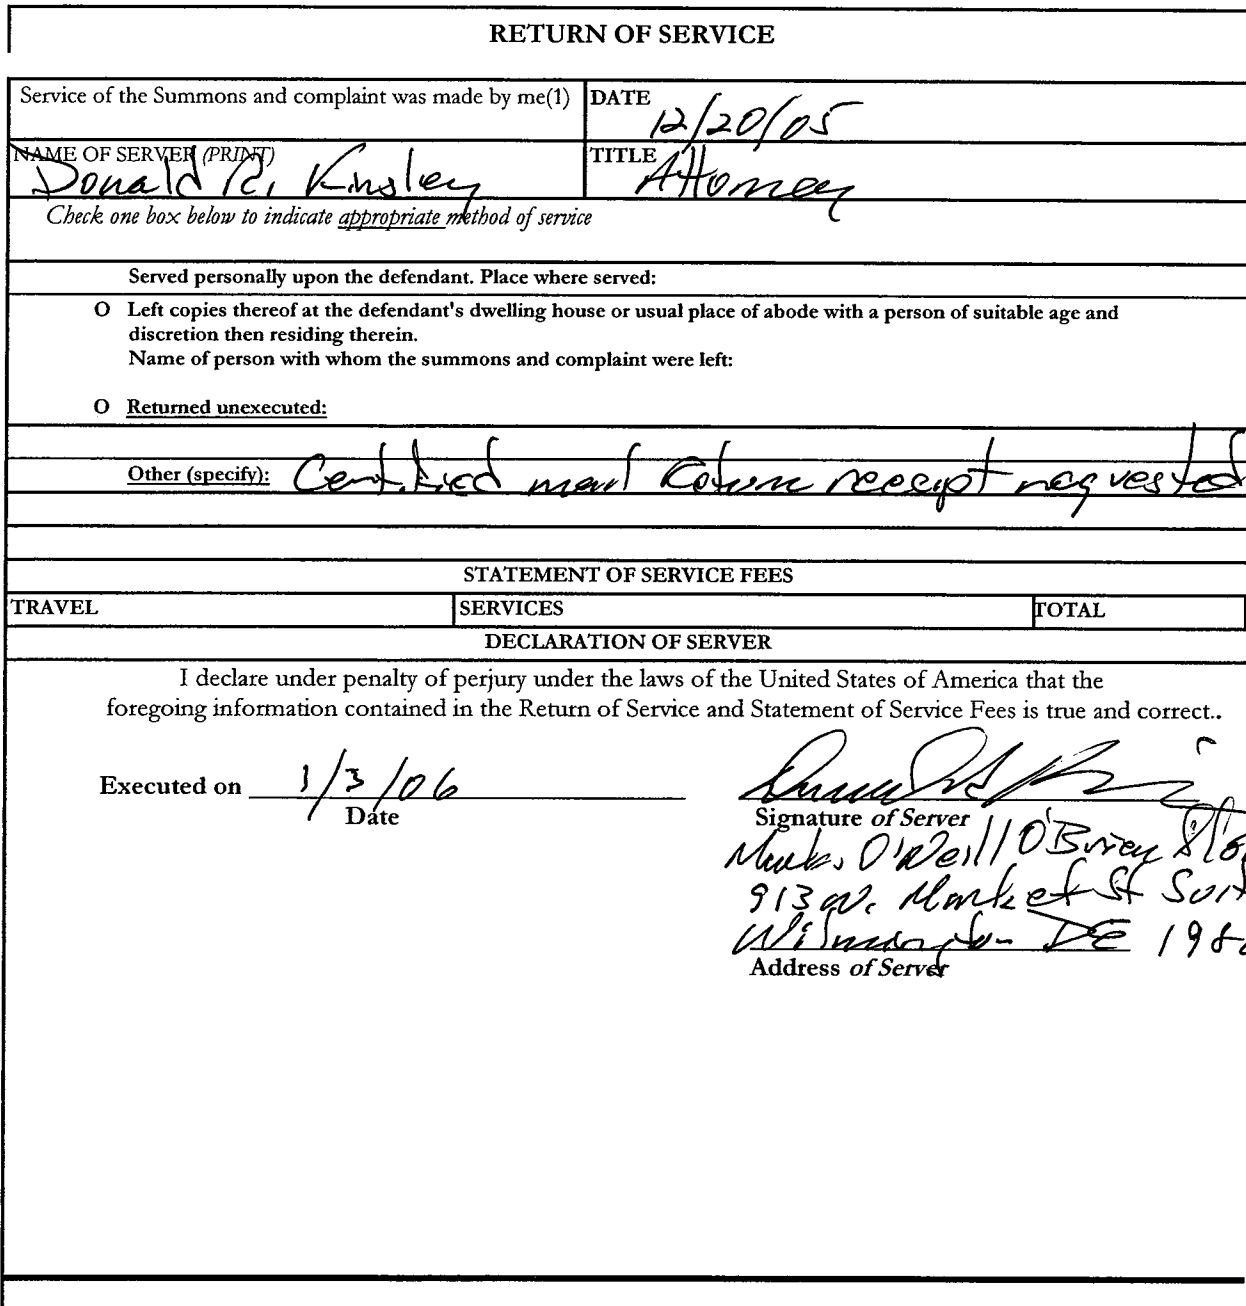 RETURN OF SERVICE
Service of the Summons and complaint was made by me(1) DATE 12/20/05
NAME OF SERVER (PRINT) TITLE
Donald R. Kinsley Attorney
Check one box below to indicate appropriate method of service
Served personally upon the defendant. Place where served:
O Left copies thereof at the defendant's dwelling house or usual place of abode with a person of suitable age and
discretion then residing therein.
Name of person with whom the summons and complaint were left:
O Returned unexecuted:
Other (specify): Certified mail Return receipt requested
STATEMENT OF SERVICE FEES
TRAVEL SERVICES TOTAL
DECLARATION OF SERVER
I declare under penalty of perjury under the laws of the United States of America that the
foregoing information contained in the Return of Service and Statement of Service Fees is true and correct..
Executed on 1/3/06
Date
Signature of Server
Marks, O'Neill O'Brien
913 N. Market St Suit
Wilmington DE 198
Address of Server